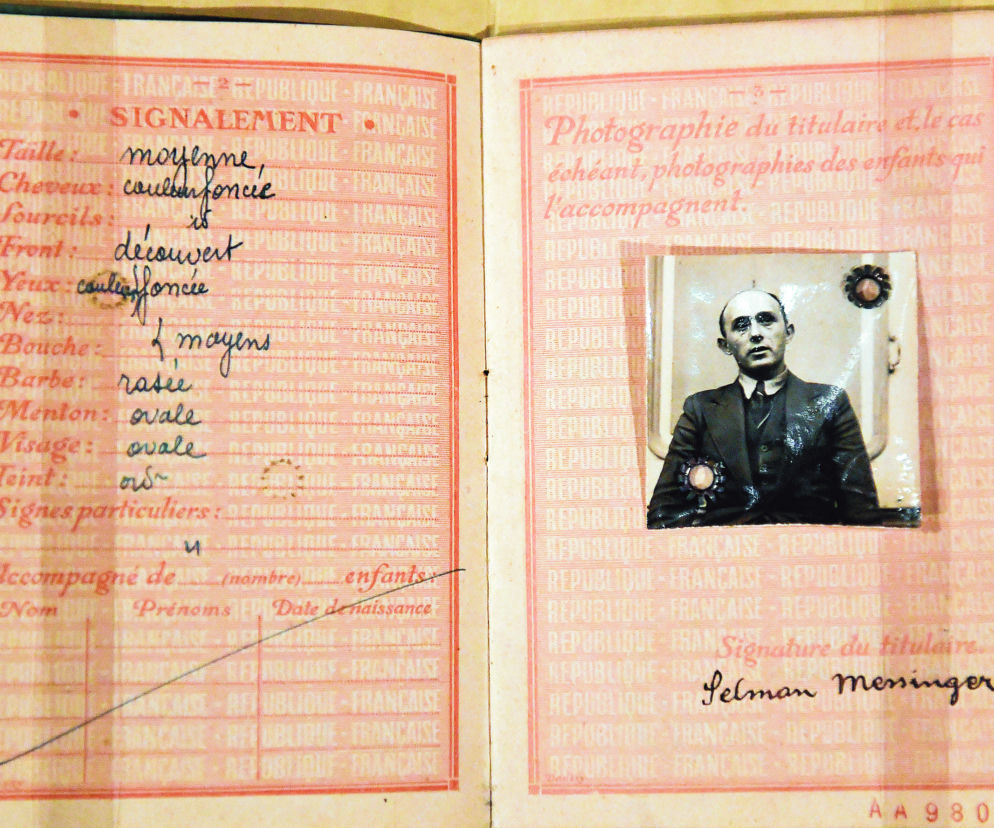 — 2 —
• SIGNALEMENT •
Taille: moyenne,
Cheveux: couleur foncée
Sourcils: id
Front: découvert
Yeux: couleur foncée
Nez:
Bouche: } moyens
Barbe: rasée
Menton: ovale
Visage: ovale
Teint:
Signes particuliers:
Accompagné de (nombre) enfants:
Nom Prénoms Date de naissance
— 3 —
Photographie du titulaire et, le cas
échéant, photographies des enfants qui
l'accompagnent.
Signature du titulaire.
Selman Messinger
AA980